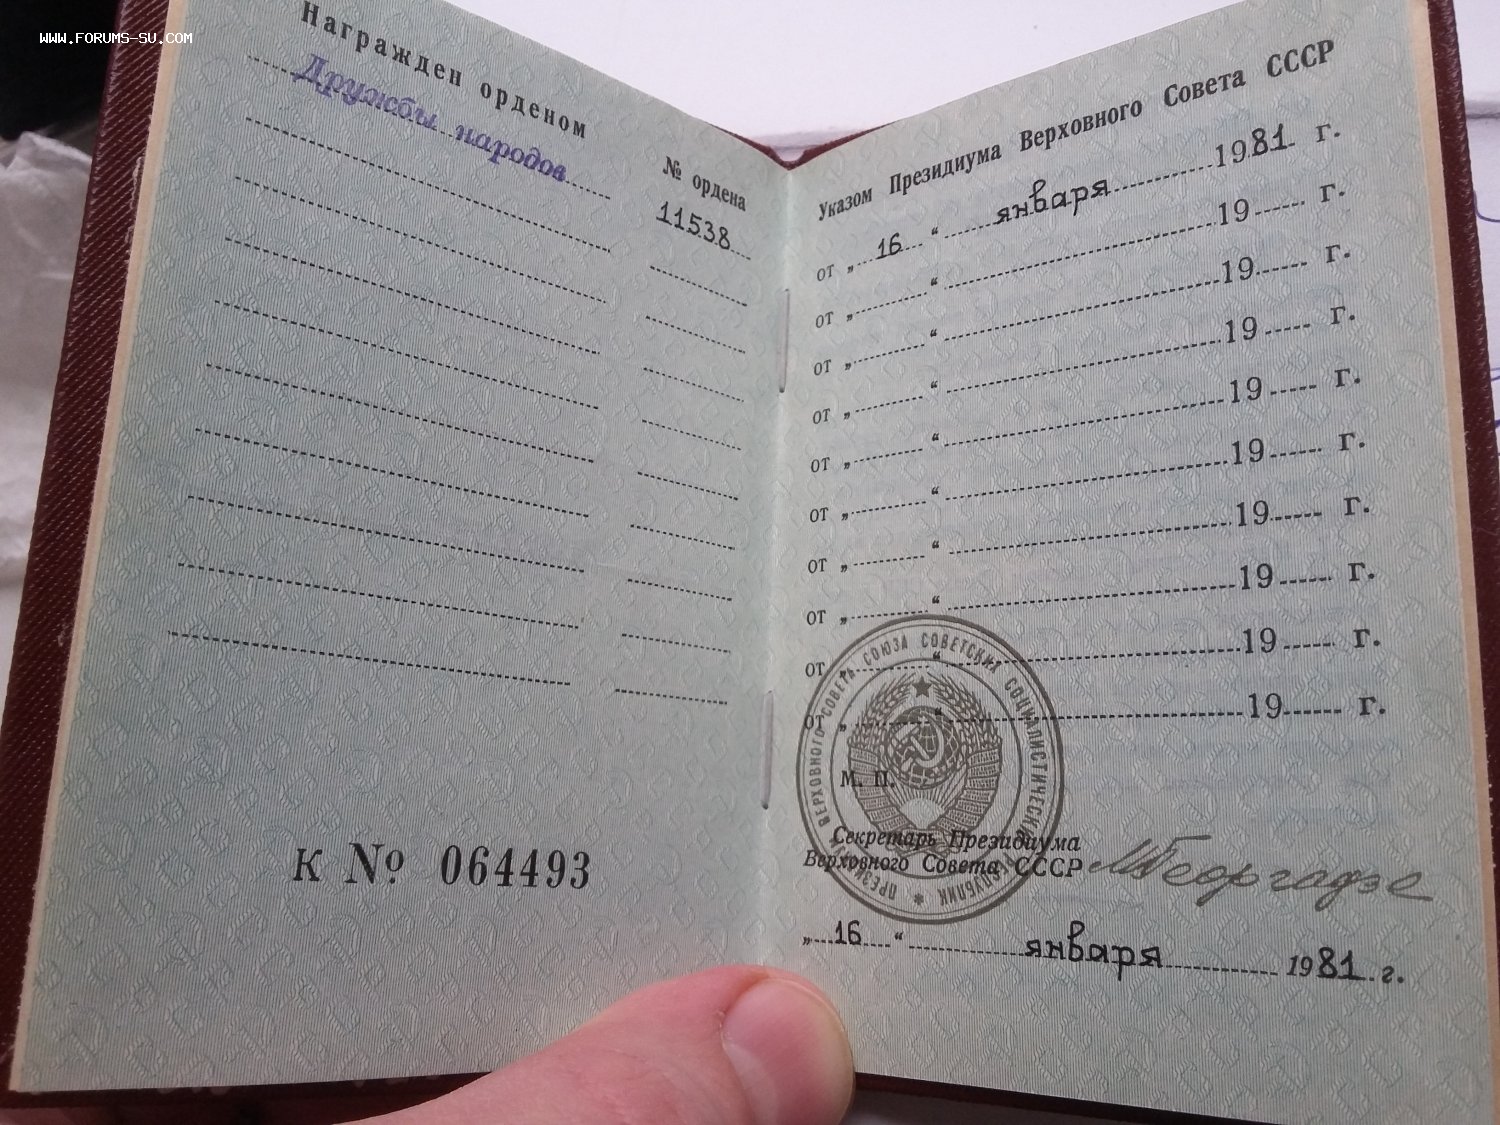 WWW.FORUMS-SU.COM
Награжден орденом
№ ордена
Дружбы народов
11538
К № 064493
Указом Президиума Верховного Совета СССР
от „ 16 “ января 1981 г.
от „ “ 19 г.
от „ “ 19 г.
от „ “ 19 г.
от „ “ 19 г.
от „ “ 19 г.
от „ “ 19 г.
от „ “ 19 г.
от „ “ 19 г.
от „ “ 19 г.
ПРЕЗИДИУМ ВЕРХОВНОГО СОВЕТА СОЮЗА СОВЕТСКИХ СОЦИАЛИСТИЧЕСКИХ РЕСПУБЛИК
М. П.
Секретарь Президиума
Верховного Совета СССР
МГеоргадзе
„ 16 “ января 1981 г.